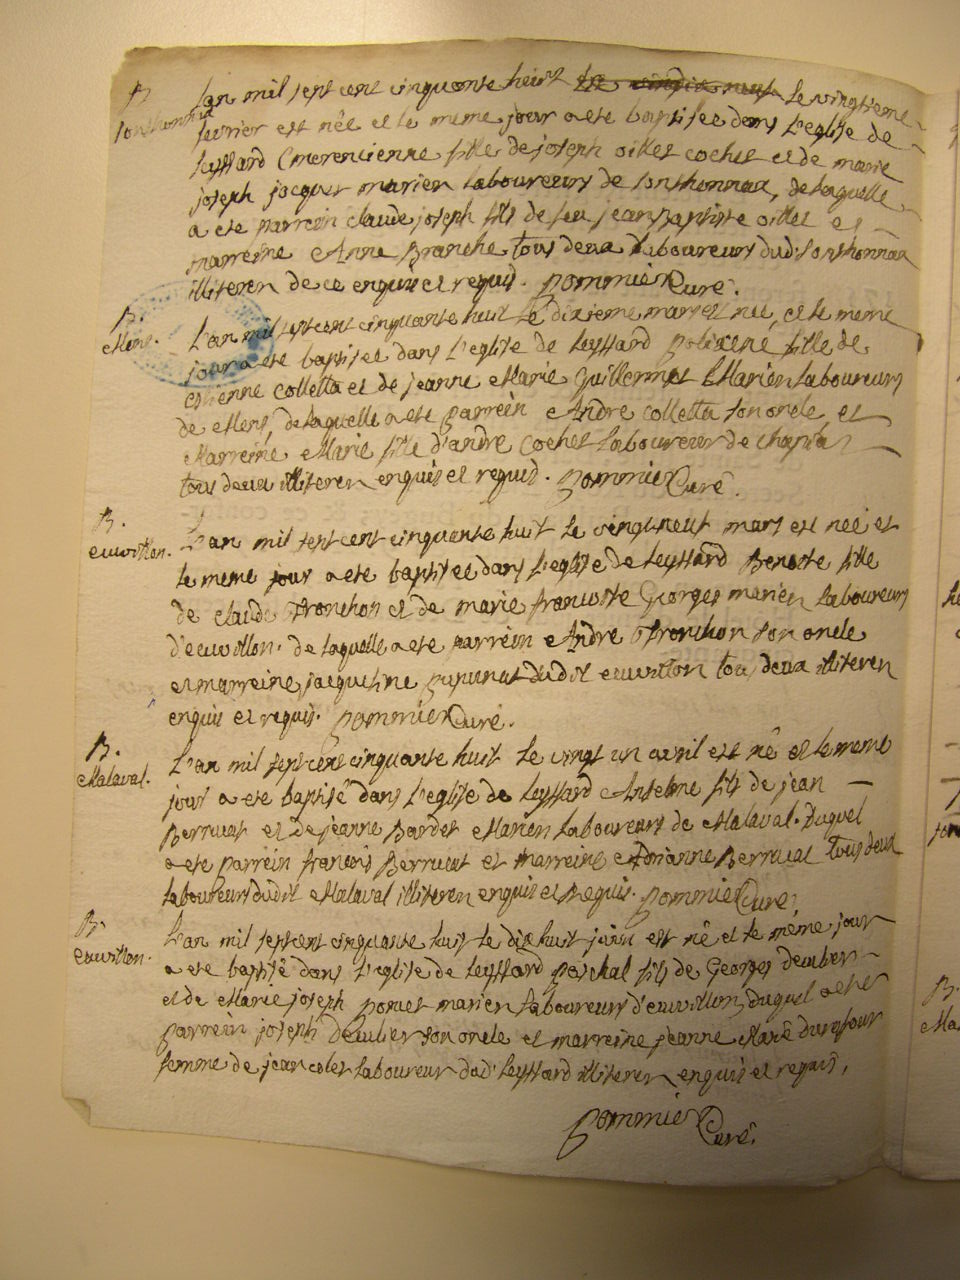 B
sonthonnax
L'an mil sept cent cinquante heist le vingtieme
fevrier est née et le meme jour a ete baptisee dans l'eglise de
leyssard Emerencienne fille de joseph oillet cochet et de marie
joseph jacquet marien laboureurs de sonthonnax, de laquelle
a ete parrein claude joseph fils de feu jean baptiste oillet et
marreine Anne Branche tous deux laboureurs dudt sonthonnax
illiteren de ce enquis et requis. pommier Curé.
B.
Mens.
L'an mil sept cent cinquante huit le dixieme mars est née, et le meme
jour a ete baptisee dans l'eglise de leyssard polixene fille de
etienne colletta et de jeanne Marie guillermet Marien laboureurs
de Mens, de laquelle a ete parrein Andre colletta son oncle, et
Marreine Marie fille d'andre Cochet laboureur de
tous deux illiteren enquis et requis. pommier Curé.
B.
euvillon.
L'an mil sept cent cinquante huit le vingt neuf mars est née et
le meme jour a ete baptisee dans l'eglise de leyssard Benoite fille
de claude Tronchon et de marie francoise Georges marien laboureurs
d'euvillon. de laquelle a ete parrein Andre Tronchon son oncle
et marreine jacqueline dudit euvillon tous deux illiteren
enquis et requis. pommier Curé.
B.
Malaval.
L'an mil sept cent cinquante huit le vingt un avril est né et le meme
jour a ete baptisé dans l'eglise de leyssard Antelme fils de jean
Berruat et de jeanne Bardet Marien laboureurs de Malaval. Duquel
a ete parrein francois Berruat et marreine Adrianne Berruat tous deux
laboureurs dudit Malaval illiteren enquis et requis. pommier Curé,
B.
euvillon.
L'an mil sept cent cinquante huit le dix huit juin est né et le même jour
a ete baptisé dans l'eglise de leyssard paschal fils de Georges
et de Marie joseph poncet marien laboureurs d'euvillon, duquel a ete
parrein joseph son oncle et marreine jeanne Marie
femme de jean laboureur dud' leyssard illiteren enquis et requis,
pommier Curé.